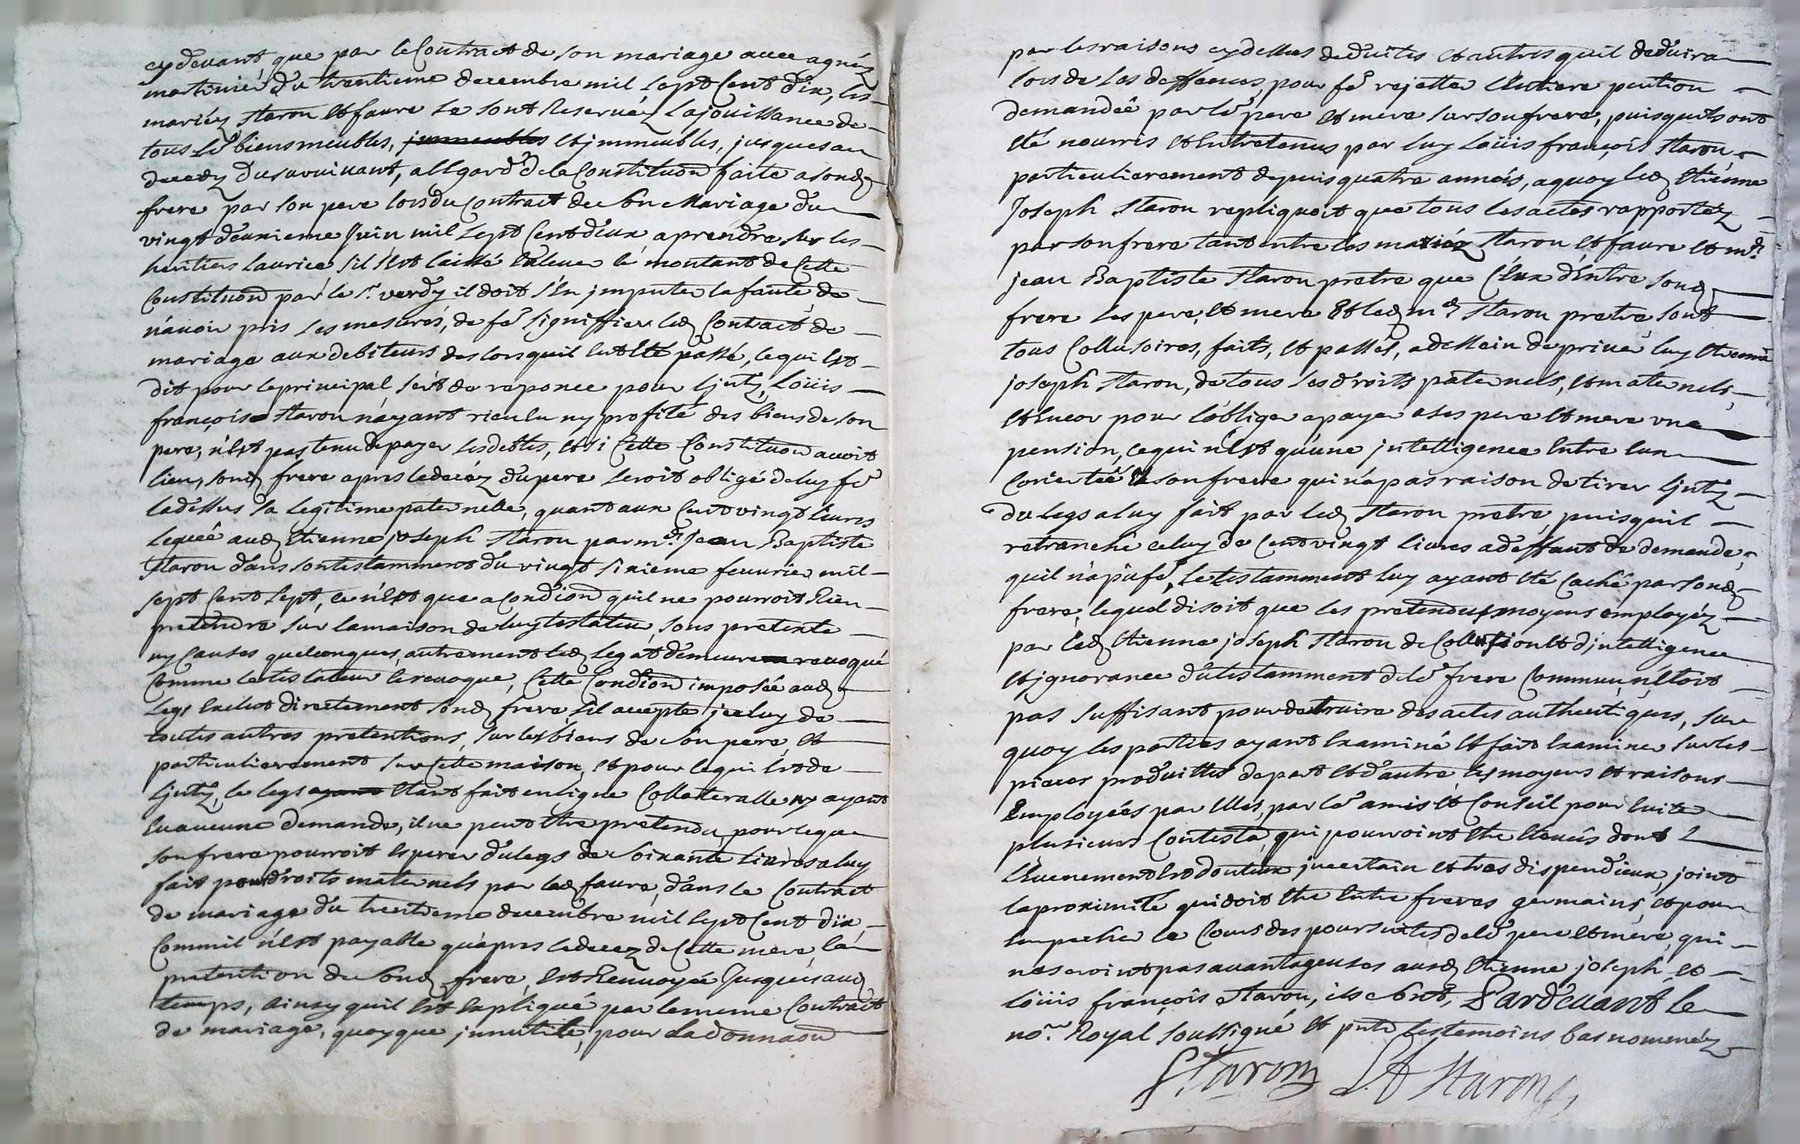 cydevant, que par le Contract de son mariage avec agnés
martinier du trentieme decembre mil sept Cent dix, les
mariéz Staron et faure se sont Reservéz La jouissance de
tous Ld biens meubles, jmmeubles et jmmeubles, jusques au
decedz du survivant, a l'egard de la Constitution faite a sond
frere par son pere lors du Contract de son Mariage du
vingt deuxieme Juin mil sept Cent deux a prendre sur les
heritiers Laurice s'il s'est laissé Enlever le montant de Cette
Constitution par le Sr. verdy il doit s'en jmputer la faute de
n'avoir pris ses mesures, de fe signiffier led Contract de
mariage aux debiteurs des lors quil eut Eté passé, ce qui Est
dit pour le principal sert de reponce pour les jnts, Loüis
françois Staron n'ayant rien eu ny profité des biens de son
pere, n'est pas tenu de payer ses debtes, et si Cette Constitution avoit
lieu, sond frere apres le decéz du pere seroit obligé de luy fe
la dessus sa Legitime paternelle, quant aux Cent vingt livres
Legué aud Etienne joseph Staron par mre. Jean Baptiste
Staron dans son testamment du vingt sixieme fevrier mil
sept Cent sept, ce n'est que a Condion quil ne pourroit Rien
pretendre sur la maison de luy testateur, sous pretexte
ny Causes quelconques, autrement led legat demeure revoqué
Comme le testateur le revoque, Cette Condion imposée aud
Legs Exclut directement sond frere s'il accepte jceluy de
toutes autres pretentions, sur les biens de son pere, et
particulierement sur Cette maison, et pour ce qui Est de
jnts, le legs ayant Etant fait en ligne Collatteralle ny ayant
Eu aucune demande, il ne peut Etre pretendu pour ce que
son frere pourroit esperer du legs de soixante livres a luy
fait pour droits maternels par lad faure, dans le Contract
de mariage du trentieme decembre mil sept Cent dix,
Comme il n'est payable qu'apres le decez de Cette mere, la
pretention de sond frere, est Renvoyée Jusques aud
temps, ainsy quil Est Expliqué par le meme Contract
de mariage, quoyque jnnutile, pour la donnaon
par les raisons cy dessus deduites et autres quil deduira
lors de ses deffences, pour fe rejetter l'Entiere pention
demandée par Ld pere et mere sur son frere, puisquils ont
Eté nourris et Entretenus par luy Loüis françois Staron,
particulierement depuis quatre années, a quoy led Etienne
Joseph Staron repliquoit que tous les actes rapportéz
par son frere tant entre les mariéz Staron, et faure et mre.
jean Baptiste Staron pretre que Ceux d'Entre sond
frere ses pere, et mere Et led mre Staron pretre sont
tous Collusoires, faits, et passés, a dessein de priver luy Etienne
joseph Staron, de tous ses droits paternels, et maternels,
et Encor pour l'obliger a payer a ses pere et mere une
pension, ce qui n'est qu'une jntelligence Entre Eux
son frere qui n'a pas raison de tirer jnts
du legs a luy fait par led Staron pretre, puisquil
retranche Celuy de Cent vingt livres a deffaut de demande,
quil n'a pû fe, Le testamment luy ayant Eté Caché par sond
frere, lequel disoit que les pretendus moyens employéz
par led Etienne joseph Staron de Collusion et d'jntelligence
et jgnorance du testamment de Ld frere Commun n'Etoit
pas suffisant pour detruire des actes authentiques, sur
quoy les parties ayant Examiné et fait Examiner sur les
pieces produittes de part et d'autre les moyens et raisons
Employées par Elles, par Ld amis et Conseil pour Eviter
plusieurs Contesta, qui pourroint Etre Elevées dont
l'Evenement Est douteux jncertain et tres dispendieux, joint
la proximité qui doit Etre Entre freres germains, et pour
Empecher le Cours des poursuites de Ld pere et mere, qui
ne seroint pas avantageuses ausd Etienne joseph, et
Loüis françois Staron, ils Pardevant le
nore. Royal soussigné et pnts les temoins bas nomméz
Staron Staron